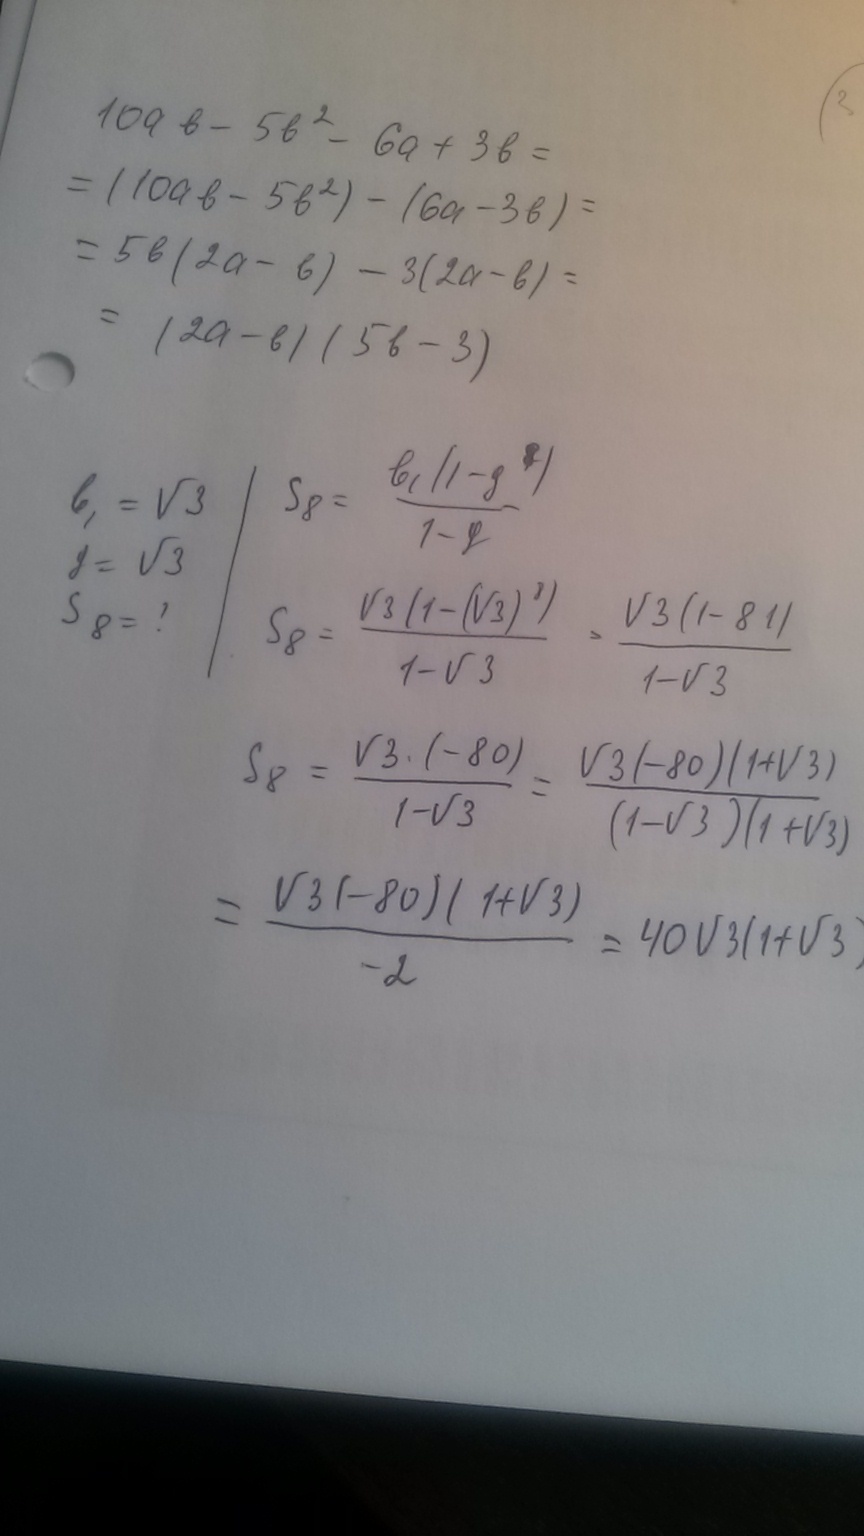 10aв - 5в² - 6a + 3в =
= (10aв - 5в²) - (6a - 3в) =
= 5в(2a - в) - 3(2a - в) =
= (2a - в)(5в - 3)
в₁ = √3
q = √3
S₈ = ?
S₈ = в₁(1-q⁸)/1-q
S₈ = √3(1-(√3)⁸)/1-√3 = √3(1-81)/1-√3
S₈ = √3·(-80)/1-√3 = √3(-80)(1+√3)/(1-√3)(1+√3)
= √3(-80)(1+√3)/-2 = 40√3(1+√3)